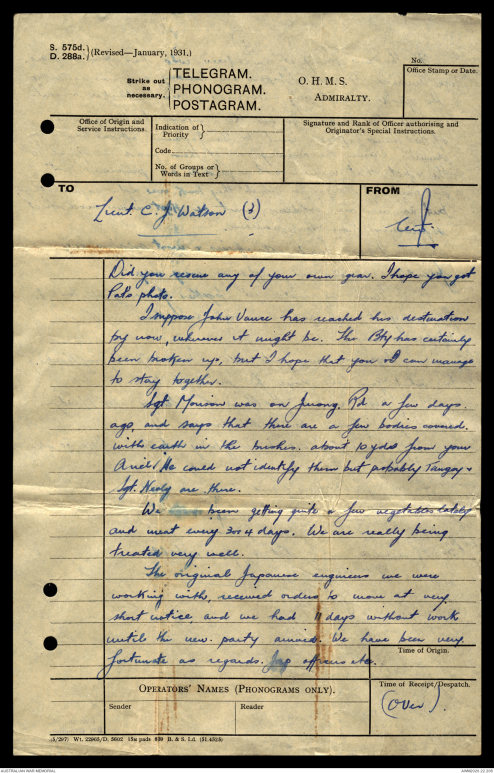 S. 575d.
D. 288a. } (Revised—January, 1931.)
Strike out
as
necessary.
TELEGRAM.
PHONOGRAM.
POSTAGRAM.
O. H. M. S.
ADMIRALTY.
No.
Office Stamp or Date.
Office of Origin and
Service Instructions.
Indication of
Priority }
Code
No. of Groups or
Words in Text }
Signature and Rank of Officer authorising and
Originator's Special Instructions.
TO
FROM
Lieut. C. J. Watson (3)
Did you rescue any of your own gear. I hope you got
Pat's photo.
I suppose John Vance has reached his destination
by now, wherever it might be. The Bty has certainly
been broken up, but I hope that you & I can manage
to stay together.
Sgt. Morison was on Jurong Rd a few days
ago, and says that there are a few bodies covered
with earth in the bushes about 10 yds from your
He could not identify them but probably Tanguy &
Sgt. Healy are there.
We been getting quite a few vegetables lately
and meat every 3 or 4 days. We are really being
treated very well.
The original Japanese engineers we were
working with, received orders to move at very
short notice, and we had 11 days without work
until the new party arrived. We have been very
fortunate as regards Jap officers etc.
Time of Origin.
OPERATORS' NAMES (PHONOGRAMS ONLY).
Sender
Reader
Time of Receipt/Despatch.
(Over).
(5/297) Wt. 22965/D. 5602 15M pads 639 B. & S. Ld. (51.4528)
AUSTRALIAN WAR MEMORIAL